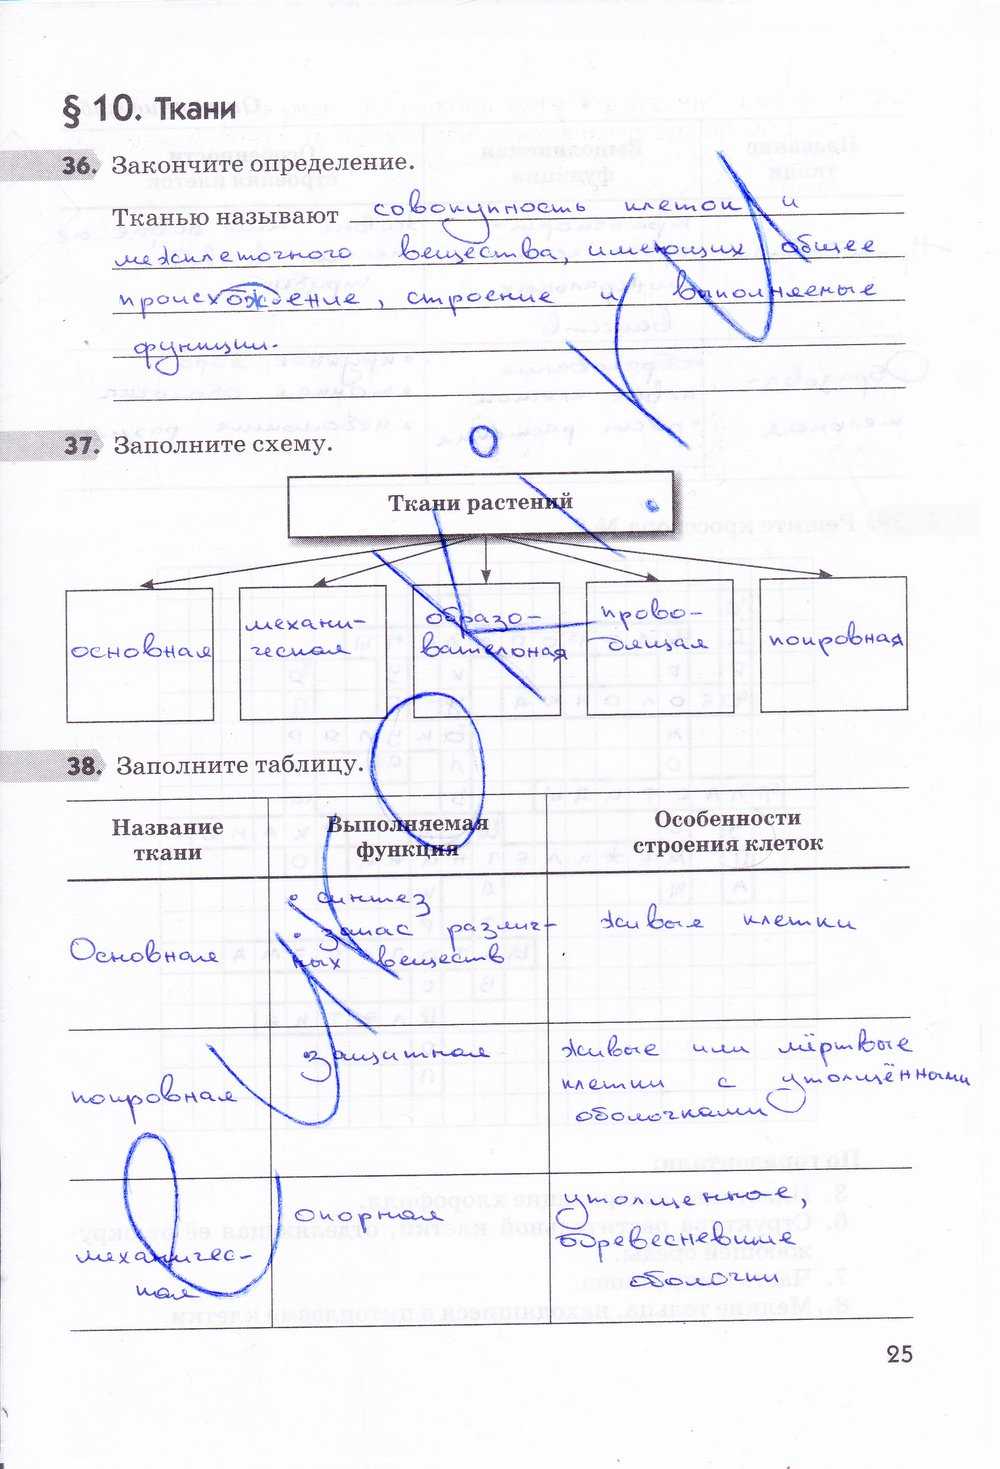 § 10. Ткани
36. Закончите определение.
Тканью называют совокупность клеток и
межклеточного вещества, имеющих общее
происхождение, строение и выполняемые
функции.
37. Заполните схему.
Ткани растений
основная
механи-
ческая
образо-
вательная
прово-
дящая
покровная
38. Заполните таблицу.
Название
ткани
Выполняемая
функция
Особенности
строения клеток
Основная
• синтез
• запас различ-
ных веществ
живые клетки
покровная
защитная
живые или мёртвые
клетки с утолщёнными
оболочками
механичес-
кая
опорная
утолщенные,
одревесневшие
оболочки
25